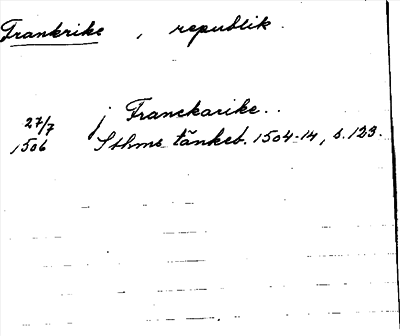 Frankrike, republik.
27/7 j Franckarike..
1506 Sthms tänkeb. 1504-14, s. 123.